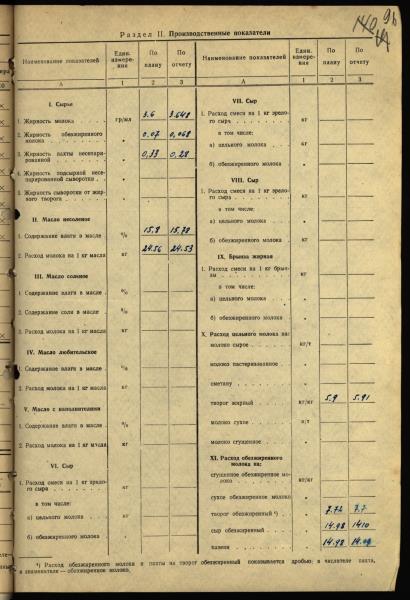 140 9б
Раздел II. Производственные показатели
Наименование показателей
Един. измерения
По плану
По отчету
А 1 2 3
I. Сырье
1. Жирность молока гр/мл 3.6 3.648
2. Жирность обезжиренного
молока " 0.07 0.068
3. Жирность пахты несепари-
рованной " 0,33 0,28
4. Жирность подсырной несе-
парированной сыворотки "
5. Жирность сыворотки от жир-
ного творога "
II. Масло несоленое
1. Содержание влаги в масле % 15.8 15.78
2. Расход молока на 1 кг масла кг 24.56 24.53
III. Масло соленое
1. Содержание влаги в масле %
2. Содержание соли в масле "
3. Расход молока на 1 кг масла кг
IV. Масло любительское
1. Содержание влаги в масле %
2. Расход молока на 1 кг масла кг
V. Масло с наполнителями
1. Содержание влаги в масле %
2. Расход молока на 1 кг масла кг
VI. Сыр
1. Расход смеси на 1 кг зрело-
го сыра кг
в том числе:
а) цельного молока "
б) обезжиренного молока "
Наименование показателей
Един. измерения
По плану
По отчету
А 1 2 3
VII. Сыр
1. Расход смеси на 1 кг зрело-
го сыра кг
в том числе:
а) цельного молока кг
б) обезжиренного молока "
VIII. Сыр
1. Расход смеси на 1 кг зрело-
го сыра кг
в том числе:
а) цельного молока "
б) обезжиренного молока кг
IX. Брынза жирная
1. Расход смеси на 1 кг брын-
зы кг
в том числе:
а) цельного молока "
б) обезжиренного молока "
X. Расход цельного молока на:
молоко сырое кг/т
молоко пастеризованное "
сметану "
творог жирный кг/кг 5.9 5.91
молоко сухое
молоко сгущенное "
XI. Расход обезжиренного
молока на:
сгущенное обезжиренное мо-
локо кг/кг
сухое обезжиренное молоко "
творог обезжиренный *) " 7.72 7.7
сыр обезжиренный " 14.98 1410
казеин " 14.98
*) Расход обезжиренного молока и пахты на творог обезжиренный показывается дробью: в числителе пахта,
в знаменателе — обезжиренное молоко.